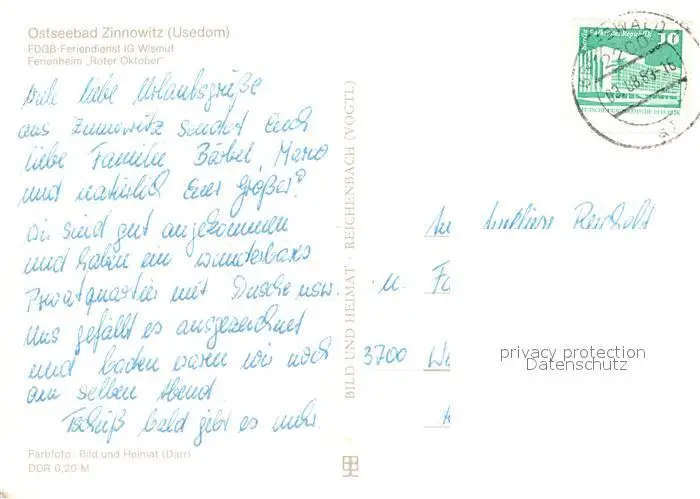 Ostseebad Zinnowitz (Usedom)
FDGB-Feriendienst IG Wismut
Ferienheim „Roter Oktober"
Viele liebe Urlaubsgrüße
aus Zinnowitz sendet Euch
liebe Familie Bärbel, Mario
und natürlich Euer "Großer"
Wir sind gut angekommen
und haben ein wunderbares
Privatquartier mit Dusche usw.
Uns gefällt es ausgezeichnet
und baden waren wir noch
am selben Abend.
Tschüß bald gibt es mehr.
Farbfoto: Bild und Heimat (Darr)
DDR 0,20 M
BILD UND HEIMAT · REICHENBACH (VOGTL)
Berlin Palast der Republik
10
DEUTSCHE DEMOKRATISCHE REPUBLIK
03.08.83-16
u.
3700
privacy protection
Datenschutz